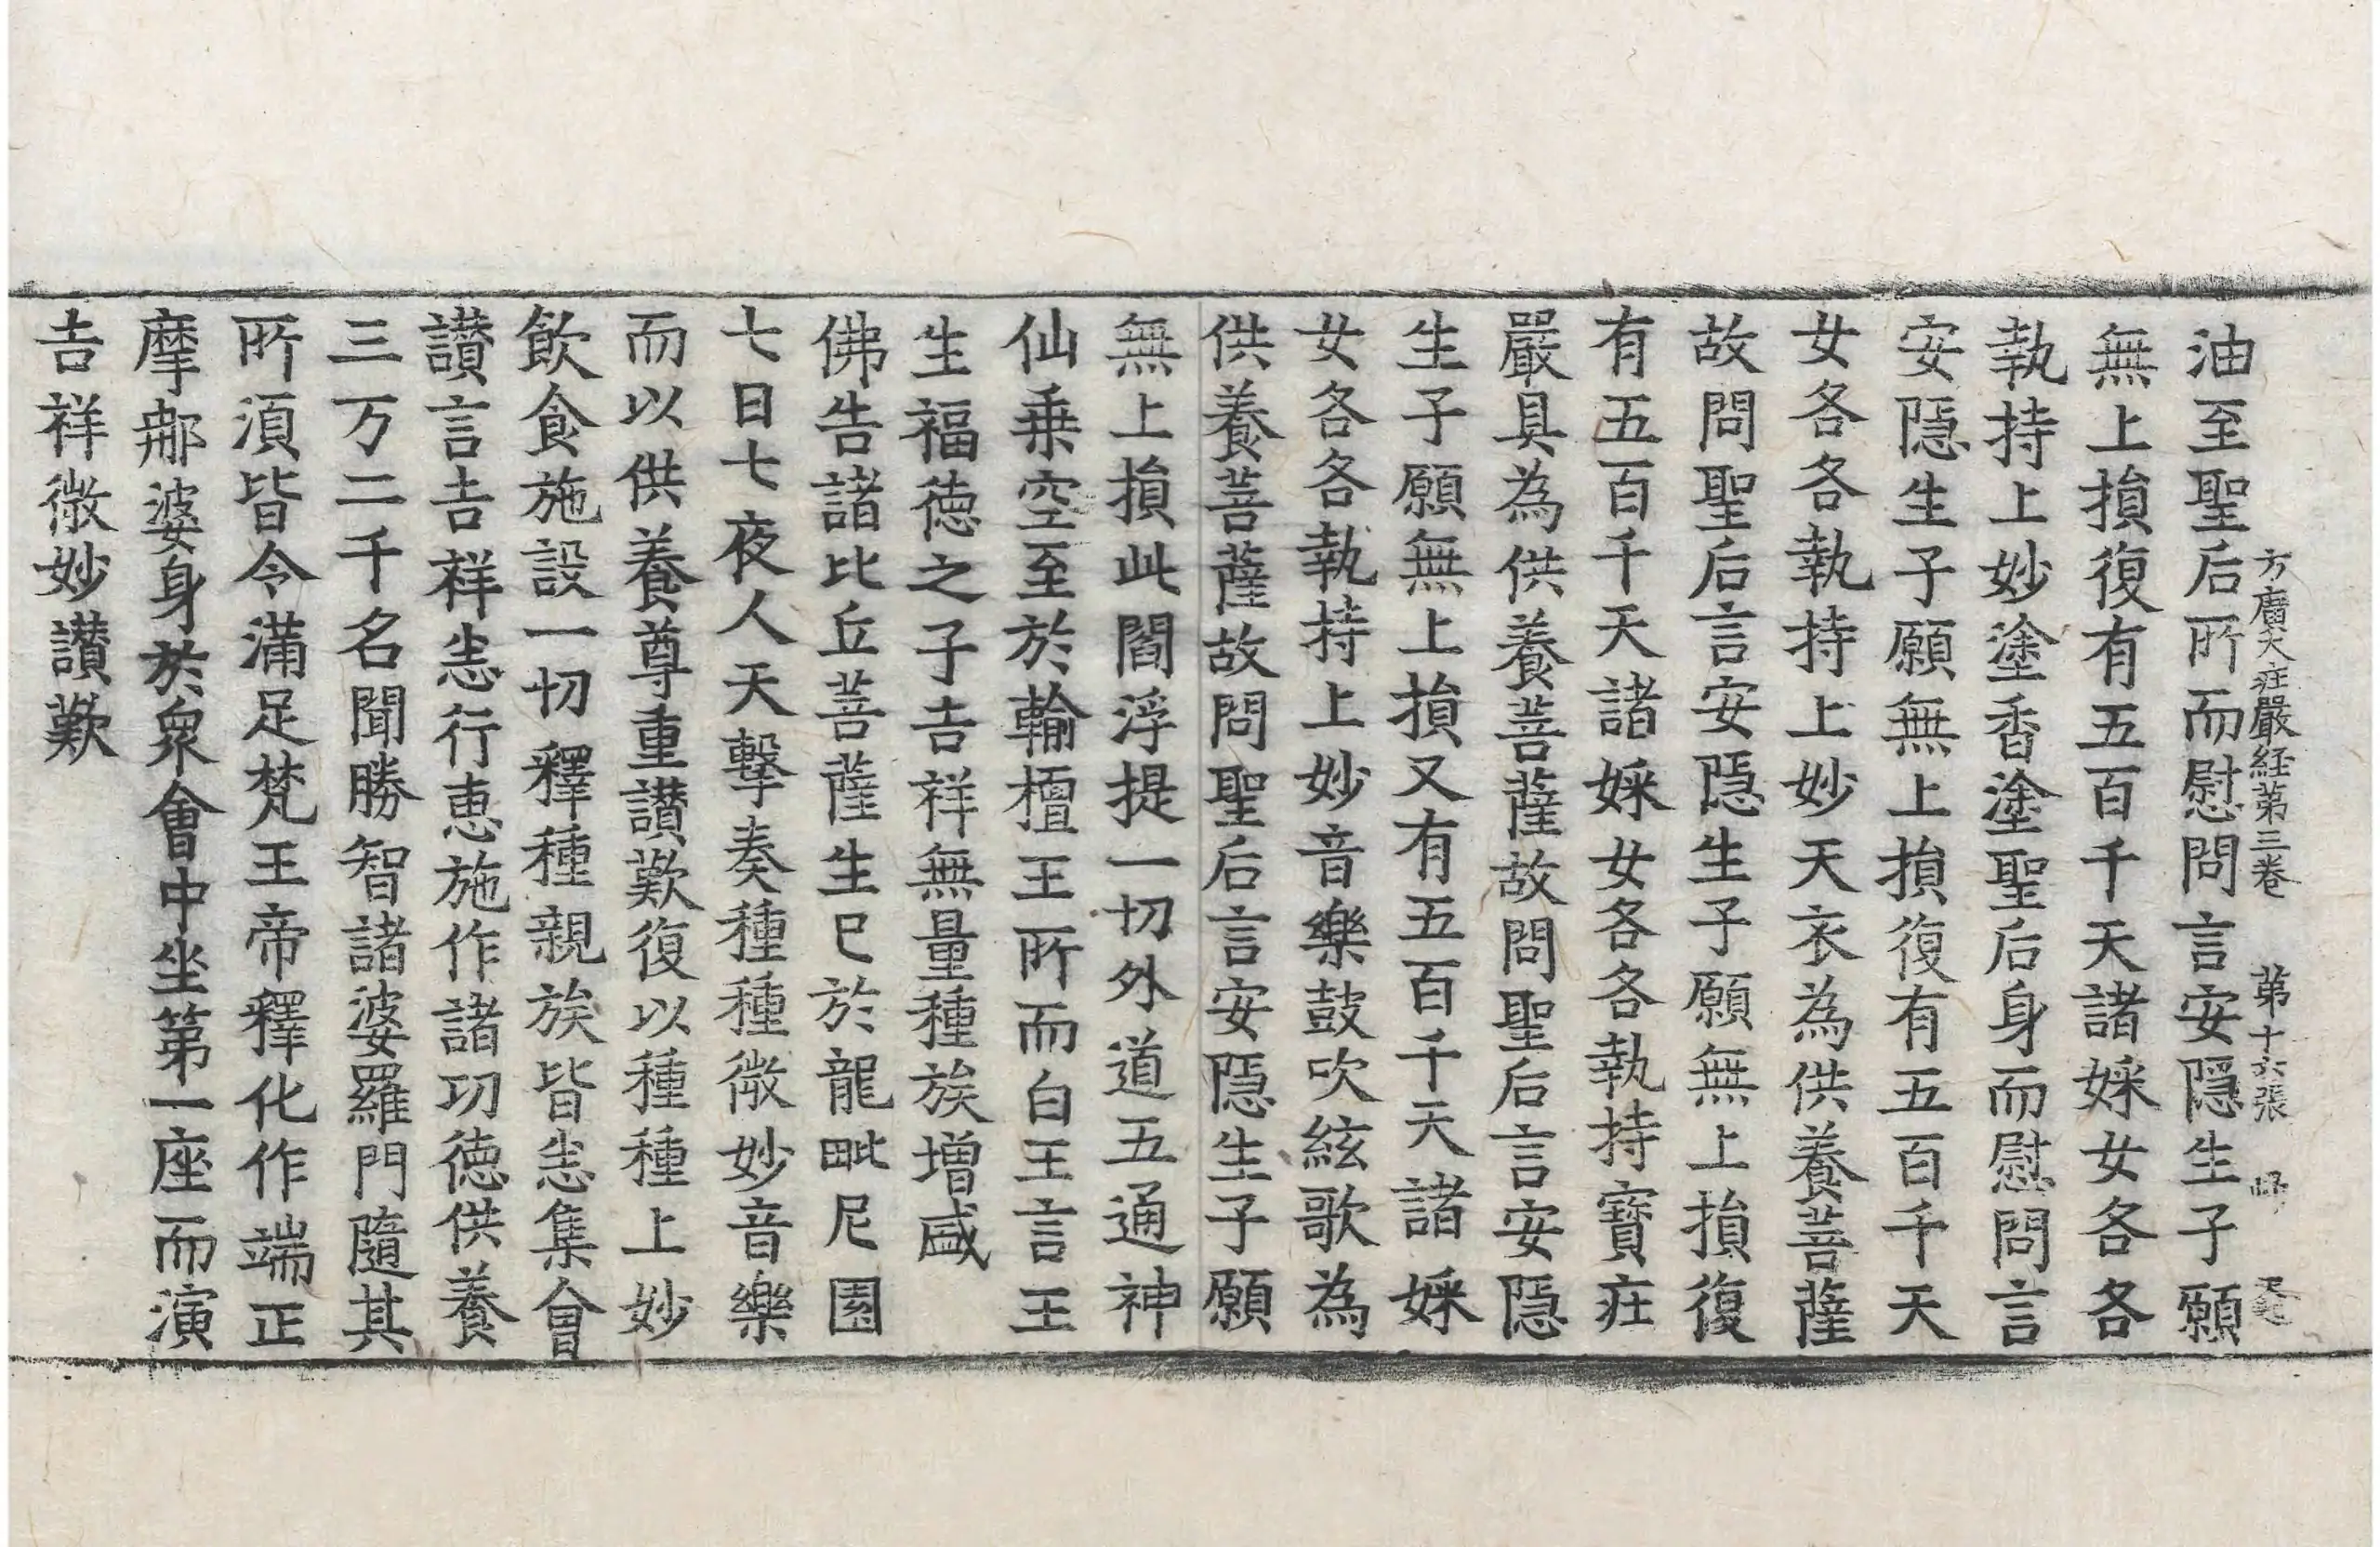 方廣大疰嚴経第三巻 第十六張
油至聖后所而慰問言安隱生子願
無上損復有五百千天諸婇女各各
執持上妙塗香塗聖后身而慰問言
安隱生子願無上損復有五百千天
女各各執持上妙天衣為供養菩薩
故問聖后言安隱生子願無上損復
有五百千天諸婇女各各執持寶疰
嚴具為供養菩薩故問聖后言安隱
生子願無上損又有五百千天諸婇
女各各執持上妙音樂鼓吹絃歌為
供養菩薩故問聖后言安隱生子願
無上損此閻浮提一切外道五通神
仙乗空至於輸檀王所而白王言王
生福徳之子吉祥無量種族増盛
佛告諸比丘菩薩生已於龍毗尼園
七日七夜人天擊奏種種微妙音樂
而以供養尊重讃歎復以種種上妙
飲食施設一切釋種親族皆悉集會
讃言吉祥悉行恵施作諸功徳供養
三万二千名聞勝智諸婆羅門隨其
所須皆令滿足梵王帝釋化作端正
摩那婆身於衆會中坐第一座而演
吉祥微妙讃歎